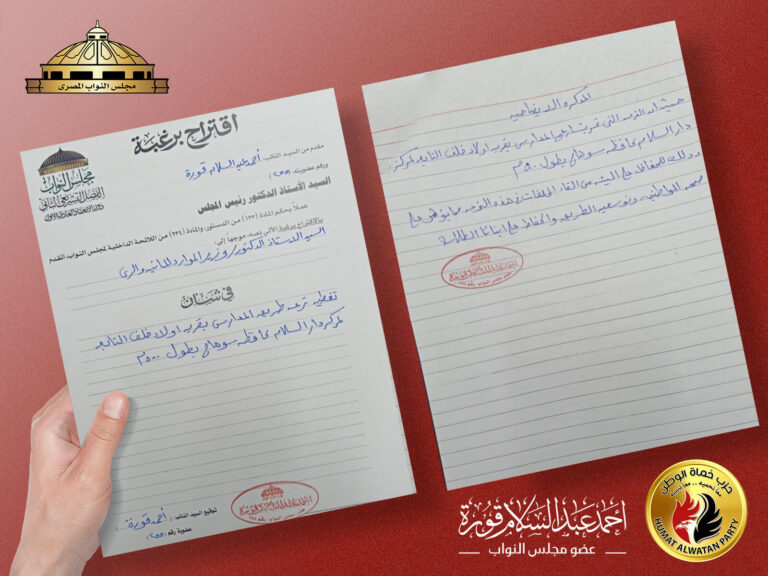 مجلس النواب المصرى
اقتراح برغبة
مجلس النواب
الفصل التشريعى الثانى
مقدم من السيد النائب: أحمد عبد السلام قورة
ورقم عضويته: (٢٥٥)
السيد الأستاذ الدكتور رئيس المجلس
عملاً بحكم المادة (١٣٣) من الدستور، والمادة (٢٣٤) من اللائحة الداخلية لمجلس النواب، أتقدم
بالاقتراح برغبة الآتي نصه، موجهاً إلى:
السيد الاستاذ الدكتور / وزير الموارد المائيه والرى
في شأن
تغطيه ترعه طريق المدارس بقريه اولاد خلف التابعه
لمركز دار السلام بمحافظه سوهاج بطول ٥٠٠م
توقيع السيد النائب: أحمد قورة
عضوية رقم: (٢٥٥)
المذكره الايضاحيه
حيث ان الترعه التى تمر بشارع المدارس بقريه اولاد خلف التابعه لمركز
دار السلام بمحافظه سوهاج بطول ٥٠٠م
وذلك للحفاظ على البيئه من القاء المخلفات هذه الترعه مما يؤثر على
صحه المواطنين وتوسعيه الطريق والحفاظ على ابنائنا الطلاب
احمد عبد السلام قورة
عضو مجلس النواب
حزب حماة الوطن
HUMAT ALWATAN PARTY